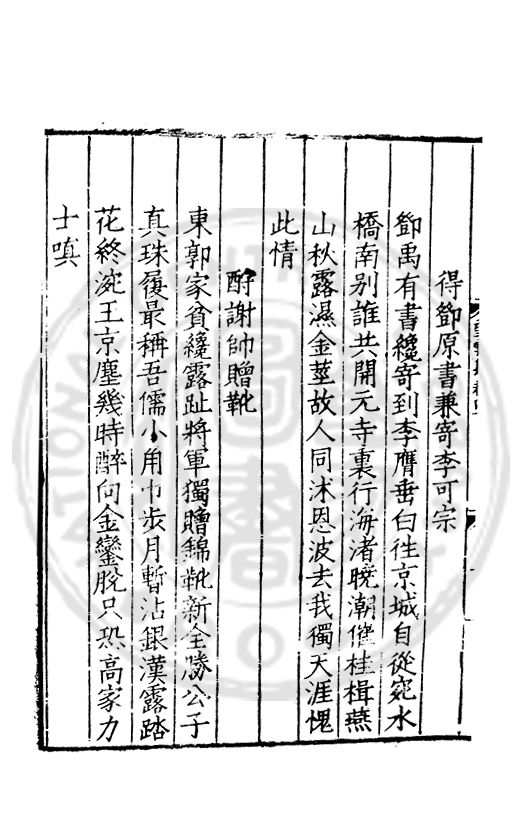 得鄧原書兼寄李可宗
鄧禹有書纔寄到李膺垂白往京城自從宛水
橋南别誰共開元寺裏行海渚晚潮催桂楫燕
山秋露濕金莖故人同沐恩波去我獨天涯愧
此情
酧謝帥贈靴
東郭家貧纔露趾將軍獨贈錦靴新全勝公子
真珠履最稱吾儒小角巾步月暫沾銀漢露踏
花終涴王京塵幾時醉向金鑾脫只恐高家力
士嗔